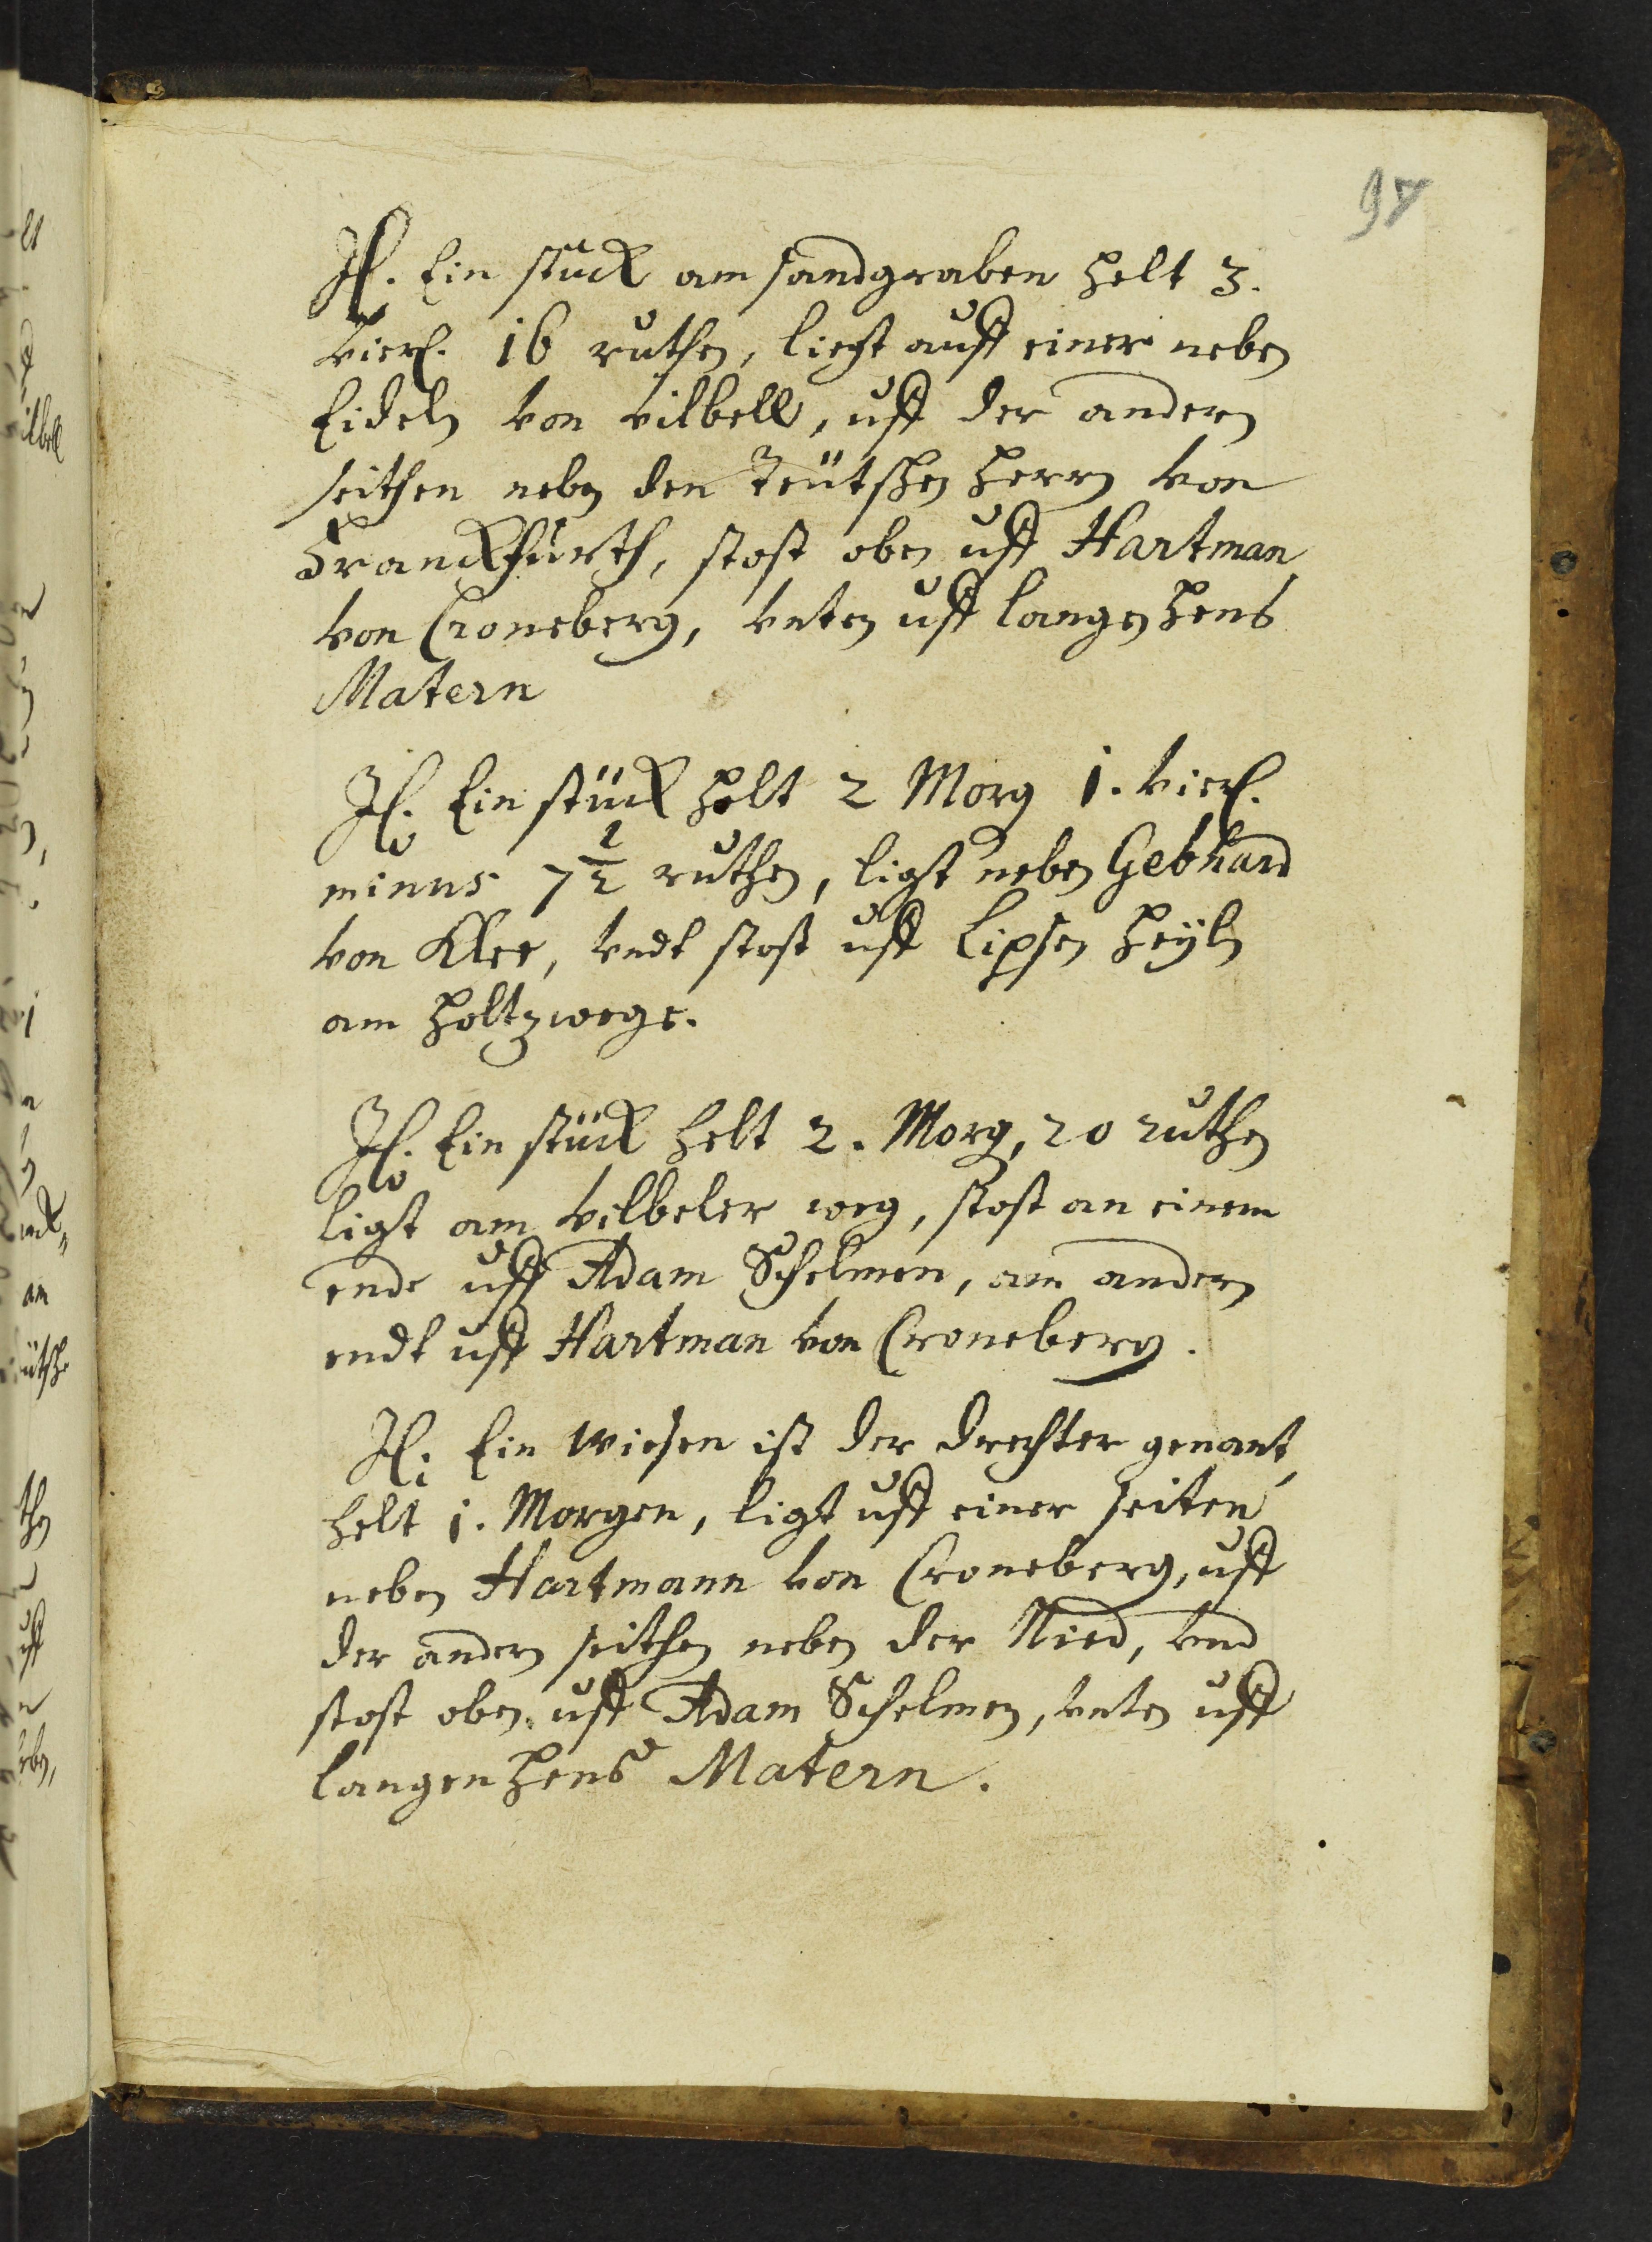 97
It. Ein stuck am sandgraben helt 3.
vierl. 16 ruthen, liest auff einer neben
Eideln von vilbell, uff der andern
seithen neben den Teütschen Herrn von
Franckfurth, stost oben uff Hartman
von Croneberg, vnten uff langen Hens
Matern
It. Ein stück holt 2 Morg 1. vierl.
minus 7 1/2 ruthen, ligt neben Gebhard
von Klee, vndt stost uff Lipsen Heyln
am Holtzwege.
It. Ein stück helt 2. Morg, 20 ruthen
ligt am vilbeler weg, stost an einem
ende uff Adam Schelmen, am andern
endt uff Hartman von Croneberg.
It. Ein Wiesen ist der drechter genant,
helt 1. Morgen, ligt uff einer seiten
neben Hartmann von Croneberg, uff
der andern seithen neben der Nied, vnd
stost oben uff Adam Schelmen, vnten uff
langen Hens Matern.